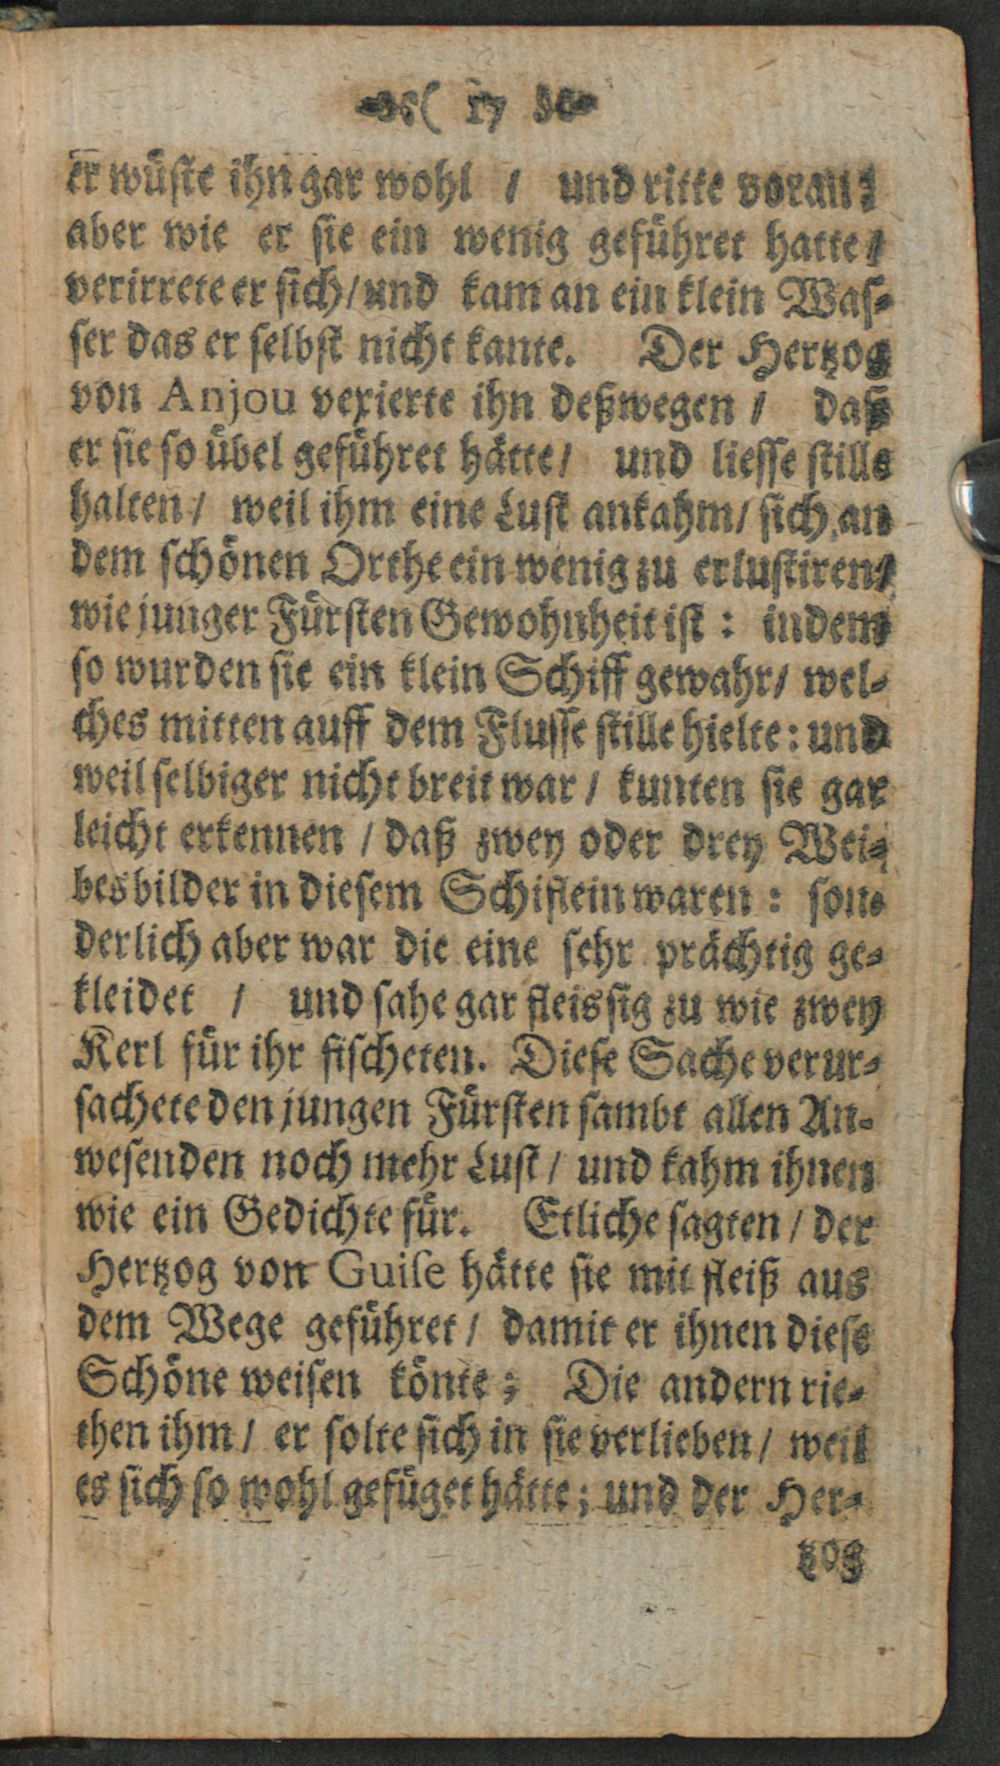 ( 17 )
er wüste ihn gar wohl / und ritte voran:
aber wie er sie ein wenig geführet hatte /
verirrete er sich / und kam an ein klein Was-
ser das er selbst nicht kante. Der Hertzog
von Anjou vexierte ihn deßwegen / daß
er sie so übel geführet hätte / und liesse stille
halten / weil ihm eine Lust ankahm / sich an
dem schönen Orthe ein wenig zu erlustiren /
wie junger Fürsten Gewohnheit ist : indem
so wurden sie ein klein Schiff gewahr / wel-
ches mitten auff dem Flusse stille hielte : und
weil selbiger nicht breit war / kunten sie gar
leicht erkennen / daß zwey oder drey Wei-
besbilder in diesem Schiflein waren : son-
derlich aber war die eine sehr prächtig ge-
kleidet / und sahe gar fleissig zu wie zwey
Kerl für ihr fischeten. Diese Sache verur-
sachete den jungen Fürsten sambt allen An-
wesenden noch mehr Lust / und kahm ihnen
wie ein Gedichte für. Etliche sagten / der
Hertzog von Guise hätte sie mit fleiß aus
dem Wege geführet / damit er ihnen diese
Schöne weisen könte ; Die andern rie-
then ihm / er solte sich in sie verlieben / weil
es sich so wohl gefüget hätte ; und der Her-
tzog